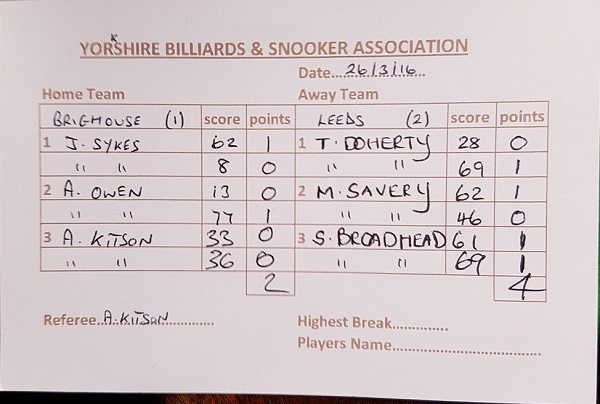 YORKSHIRE BILLIARDS & SNOOKER ASSOCIATION
Date....26/3/16...
Home Team Away Team
BRIGHOUSE (1) score points LEEDS (2) score points
1 J. SYKES 62 1 1 T. DOHERTY 28 0
" " 8 0 " " 69 1
2 A. OWEN 13 0 2 M. SAVERY 62 1
" " 77 1 " " 46 0
3 A. KITSON 33 0 3 S. BROADHEAD 61 1
" " 36 0 " " 69 1
2 4
Referee..A. KITSON.............. Highest Break.............
Players Name..................................